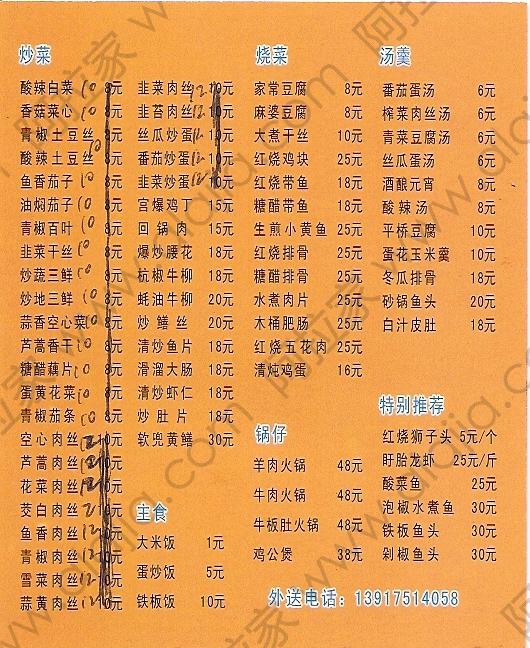 炒菜
酸辣白菜 10 8元
香菇菜心 10 8元
青椒土豆丝 8元
酸辣土豆丝 10 8元
鱼香茄子 10 8元
油焖茄子 10 8元
青椒百叶 10 8元
韭菜干丝 10 8元
炒蔬三鲜 10 8元
炒地三鲜 10 8元
蒜香空心菜 10 8元
芦蒿香干 10 8元
糖醋藕片 10 8元
蛋黄花菜 10 8元
青椒茄条 10 8元
空心肉丝 12 10元
芦蒿肉丝 12 10元
花菜肉丝 12 10元
茭白肉丝 12 10元
鱼香肉丝 12 10元
青椒肉丝 12 10元
雪菜肉丝 12 10元
蒜黄肉丝 12 10元
韭菜肉丝 12 10元
韭苔肉丝 12 10元
丝瓜炒蛋 12 10元
番茄炒蛋 12 10元
韭菜炒蛋 12 10元
宫爆鸡丁 15元
回锅肉 15元
爆炒腰花 18元
杭椒牛柳 18元
蚝油牛柳 20元
炒鳝丝 20元
清炒鱼片 18元
滑溜大肠 18元
清炒虾仁 18元
炒肚片 18元
软兜黄鳝 30元
主食
大米饭 1元
蛋炒饭 5元
铁板饭 10元
烧菜
家常豆腐 8元
麻婆豆腐 8元
大煮干丝 10元
红烧鸡块 25元
红烧带鱼 18元
糖醋带鱼 18元
生煎小黄鱼 25元
红烧排骨 25元
糖醋排骨 25元
水煮肉片 25元
木桶肥肠 25元
红烧五花肉 25元
清炖鸡蛋 16元
锅仔
羊肉火锅 48元
牛肉火锅 48元
牛板肚火锅 48元
鸡公煲 38元
汤羹
番茄蛋汤 6元
榨菜肉丝汤 6元
青菜豆腐汤 6元
丝瓜蛋汤 6元
酒酿元宵 8元
酸辣汤 8元
平桥豆腐 10元
蛋花玉米羹 10元
冬瓜排骨 18元
砂锅鱼头 20元
白汁皮肚 18元
特别推荐
红烧狮子头 5元/个
盱眙龙虾 25元/斤
酸菜鱼 25元
泡椒水煮鱼 30元
铁板鱼头 30元
剁椒鱼头 30元
外送电话：13917514058
阿拉家 www.alajia.com